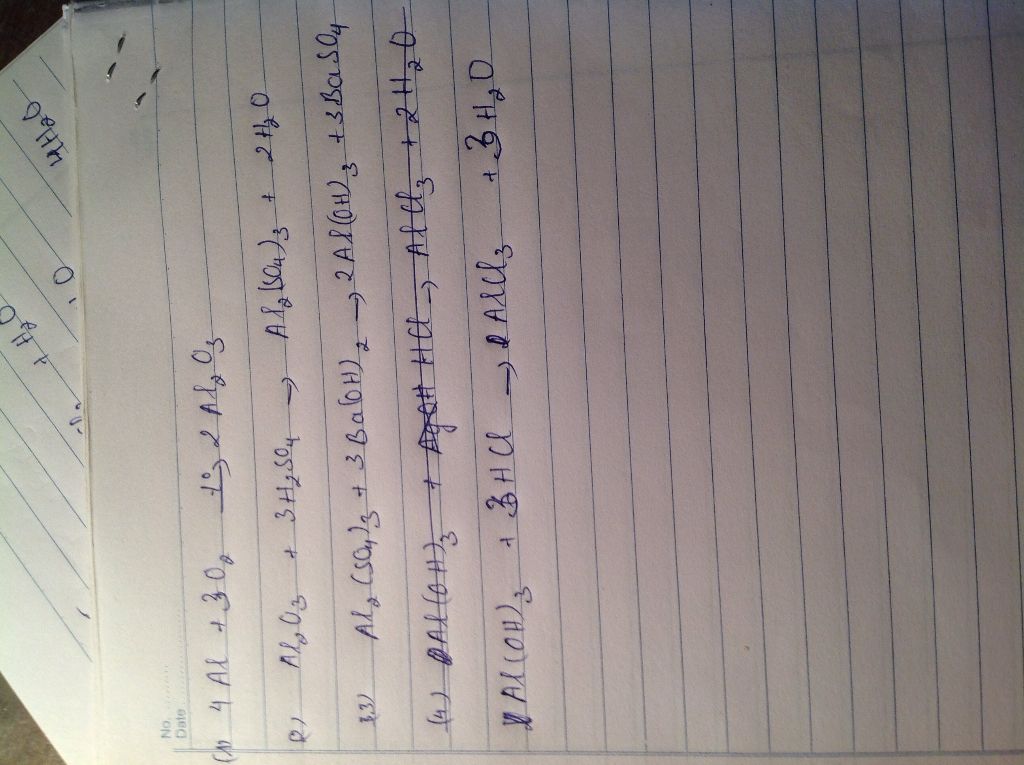 No.
Date
(1) 4 Al + 3O₂ —t°→ 2 Al₂O₃
(2) Al₂O₃ + 3H₂SO₄ → Al₂(SO₄)₃ + 2H₂O
(3) Al₂(SO₄)₃ + 3Ba(OH)₂ → 2Al(OH)₃ + 3BaSO₄
(4) Al(OH)₃ + HCl → AlCl₃ + 2H₂O
Al(OH)₃ + 3HCl → AlCl₃ + 3H₂O
+ H₂O
4H₂O